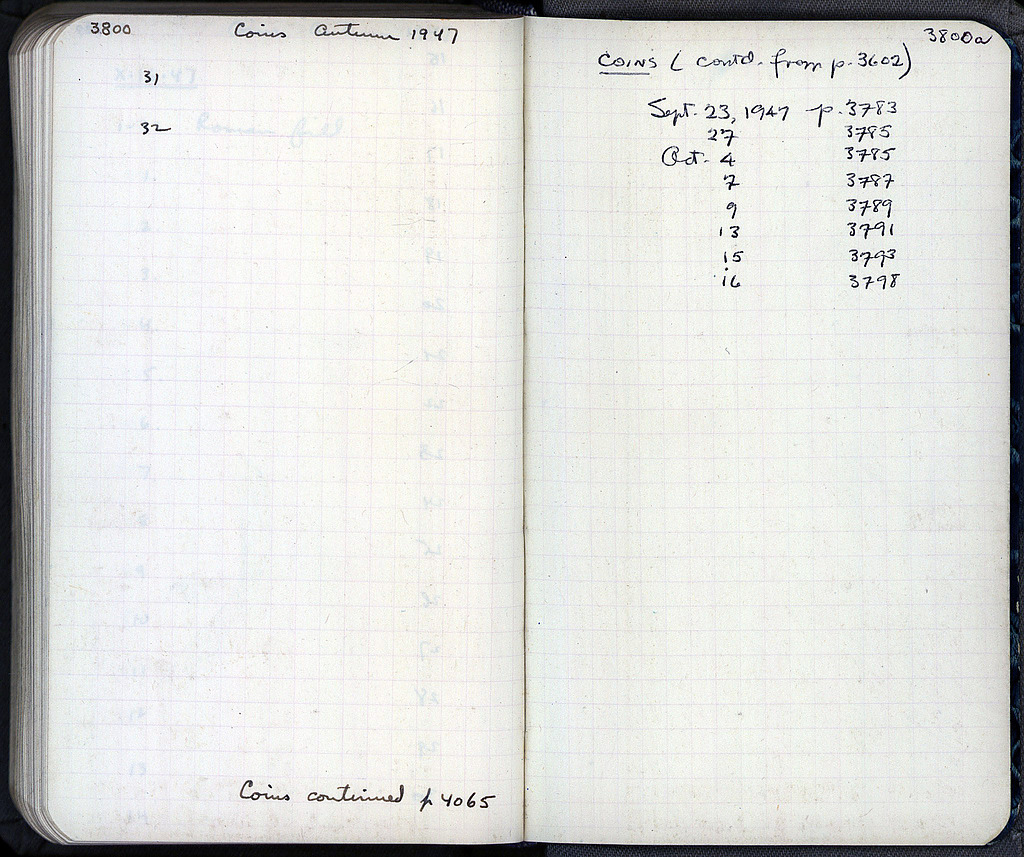 3800
Coins Autumn 1947
31
32
Coins continued p 4065
3800a
COINS (contd. from p. 3602)
Sept. 23, 1947 p. 3783
27 3785
Oct. 4 3785
7 3787
9 3789
13 3791
15 3793
16 3798